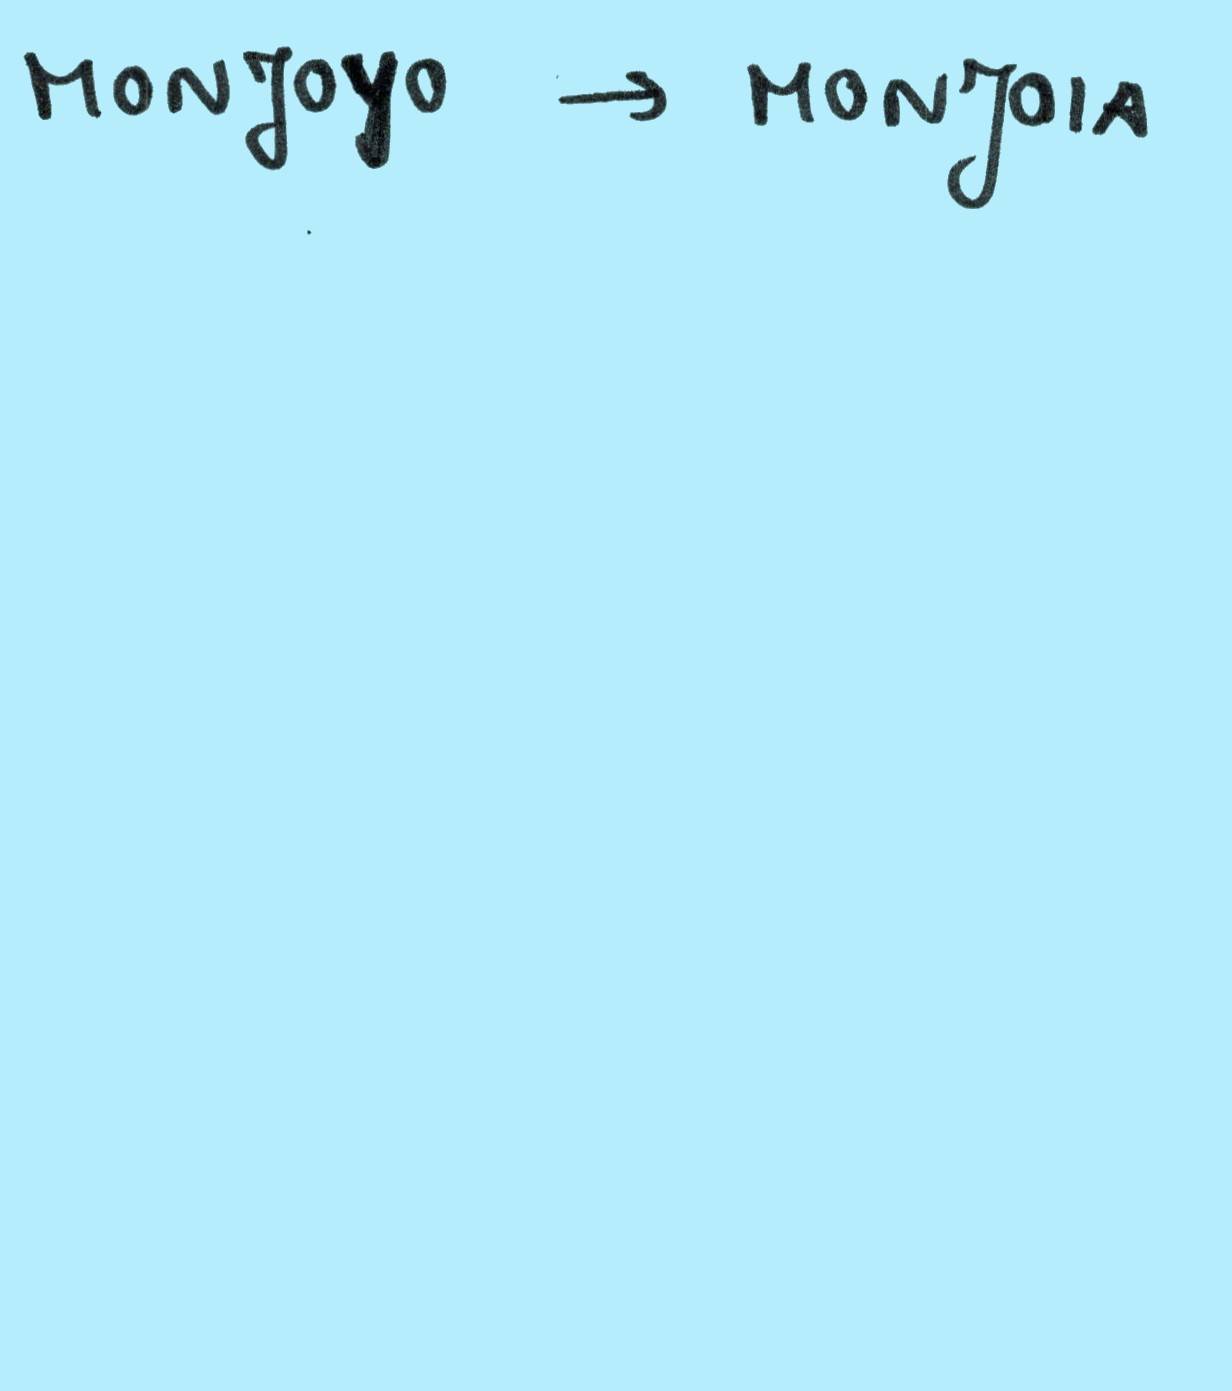 MONJOYO → MONJOIA